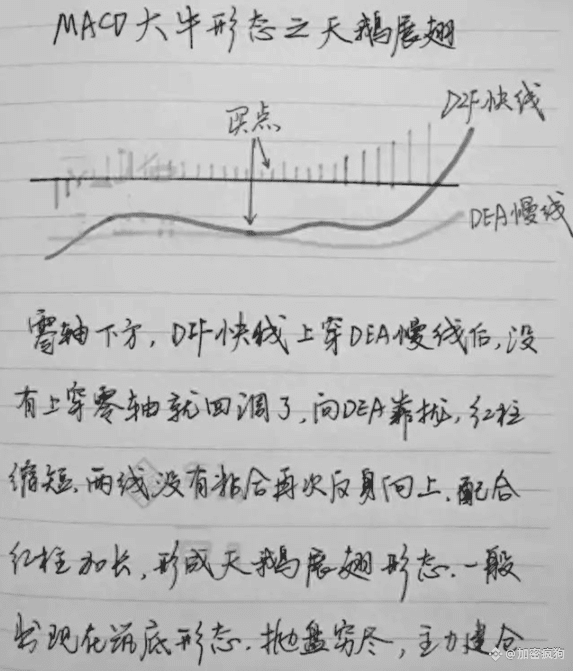 MACD大牛形态之天鹅展翅
买点
DIF快线
DEA慢线
零轴下方，DIF快线上穿DEA慢线后，没
有上穿零轴就回调了，向DEA靠拢，红柱
缩短，两线没有粘合再次反身向上，配合
红柱加长，形成天鹅展翅形态．一般
出现在筑底形态．抛盘穷尽，主力建仓
@加密疯狗